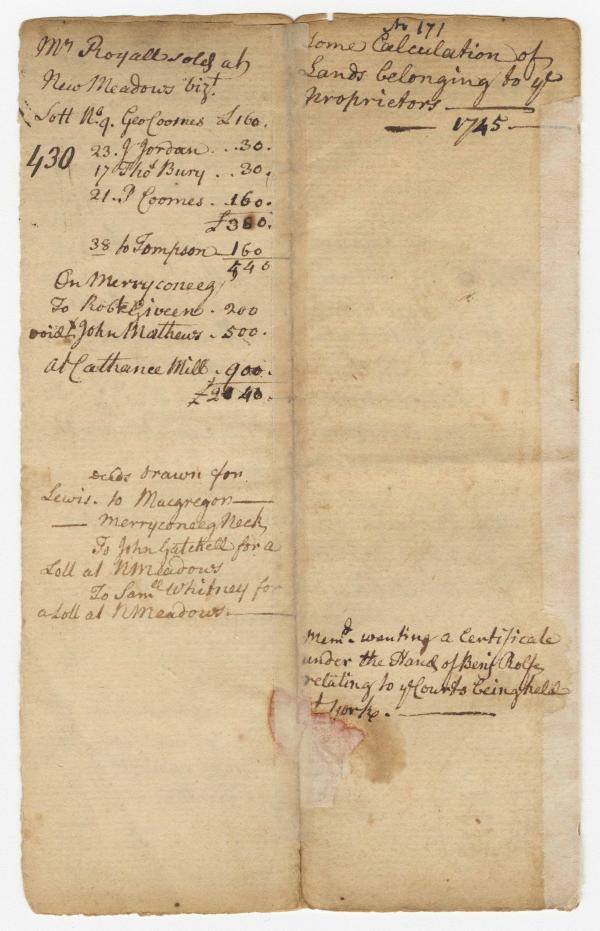 Mr Royall sold at
New Meadows vizt.
Lott No. 9. Geo Coomes £160.
430
23. J Jordan . . 30.
17 Thos Bury . . 30.
21. P Coomes . 160.
£380.
38 to Tompson 160
540
On Merryconeeg
To Robt Giveen . 200
void John Mathews . 500.
at Cathance Mill . 900.
£2140.
deeds drawn for
Lewis. to Macgregor —
— Merryconeeg Neck,
To John Gatchell for a
Lott at N Meadows
To Samll Whitney for
a Lott at N Meadows. —
No 171
Some Calculation of
Lands belonging to ye
Proprietors —
— 1745 —
Memd. wanting a Certificate
under the Hand of Benj Rolfe
relating to ye Courts being held
at York. —